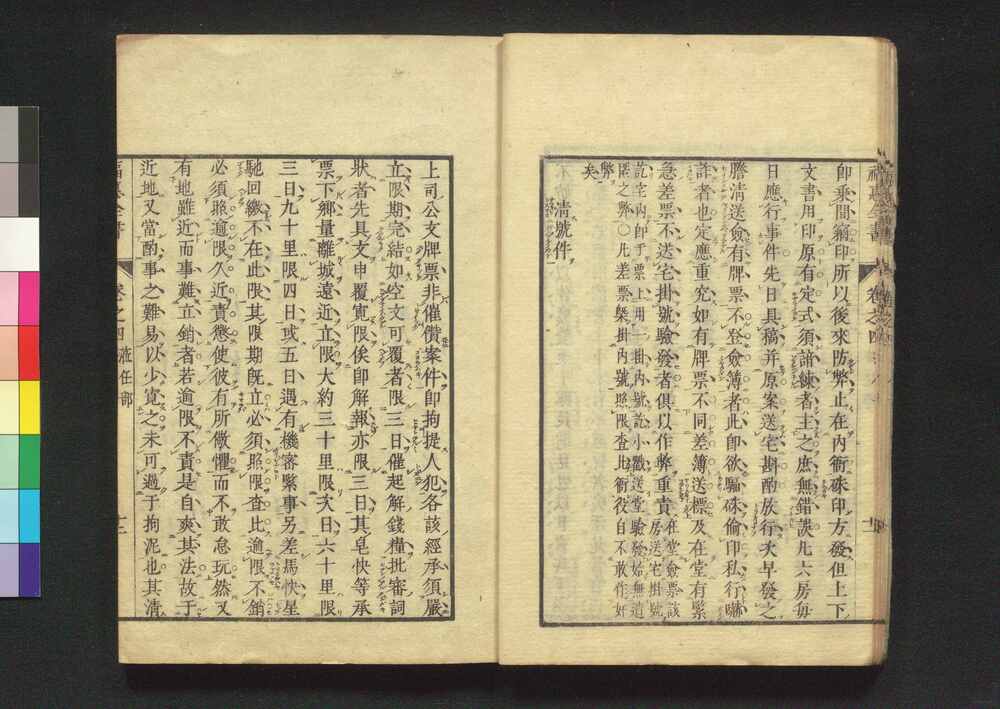 即乘間竊印所以後來防弊止在內衙硃印方發但上下
文書用印原有定式須諳練者主之庶無錯誤凡六房每
日應行事件先日具稿并原案送宅斟酌放行次早發之
謄淸送僉有牌票不登僉簿者此卽欲騙硃偷印私行嚇
詐者也定應重究如有牌票不同差簿送標及在堂有緊
急差票不送宅掛號驗發者俱以作弊重責在堂僉票該房送宅掛號
訖宅內卽于票上用一掛內號訖小戳送堂驗發始無遺
匿之弊〇凡差票槩掛內號照限查比衙役自不敢作奸
弊矣
淸號件
上司公文牌票非催儹案件卽拘提人犯各該經承須嚴
立限期完結如空文可覆者限三日催起解錢糧批審詞
狀者先具文申覆寬限俟卽解報亦限三日其皂快等承
票下鄉量離城遠近立限大約三十里限次日六十里限
三日九十里限四日或五日遇有機審緊事另差馬快星
馳回繳不在此限其限期旣立必須照限查比逾限不銷
必須照逾限久近責懲使彼有所儆懼而不敢怠玩然又
有地雖近而事難立銷者若逾限不責是自爽其法故于
近地又當酌事之難易以少寬之未可過于拘泥也其淸
卷之四 蒞任部